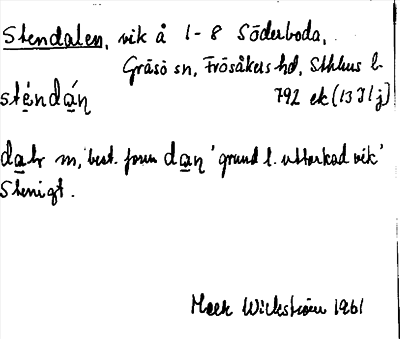 Stendalen, vik å 1-8 Söderboda,
Gräsö sn, Frösåkers hd, Sthlms l.
792 ek (13 I 1 j)
sténdán
dal m, best. form dan 'grund l. uttorkad vik'
Stenigt.
Wickström 1961